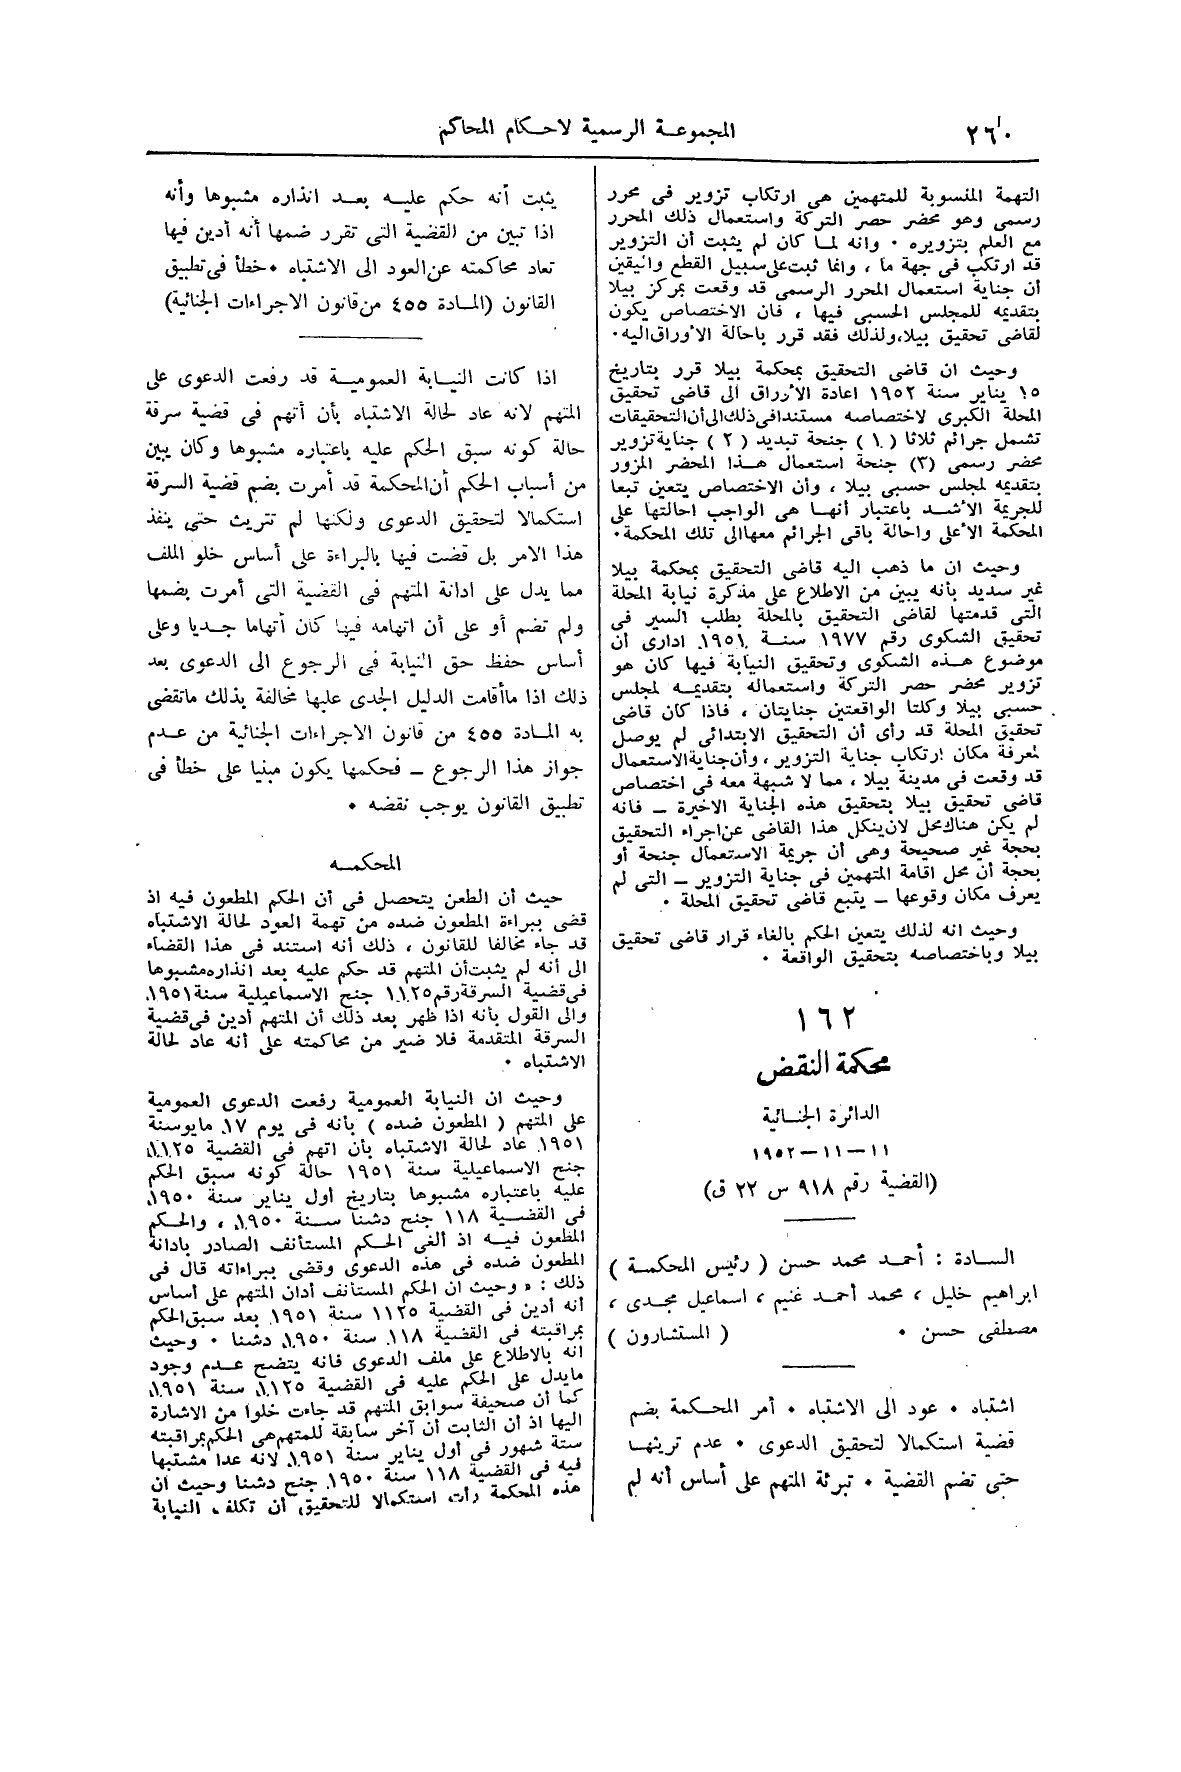 ٢٦٠
المجموعة الرسمية لاحكام المحاكم
التهمة المنسوبة للمتهمين هى ارتكاب تزوير فى محرر
رسمى وهو محضر حصر التركة واستعمال ذلك المحرر
مع العلم بتزويره ٠ وانه لما كان لم يثبت أن التزوير
قد ارتكب فى جهة ما ، وانما ثبت على سبيل القطع واليقين
أن جناية استعمال المحرر الرسمى قد وقعت بمركز بيلا
بتقديمه للمجلس الحسبى فيها ، فان الاختصاص يكون
لقاضى تحقيق بيلا، ولذلك فقد قرر باحالة الأوراق اليه٠
وحيث ان قاضى التحقيق بمحكمة بيلا قرر بتاريخ
١٥ يناير سنة ١٩٥٢ اعادة الأرراق الى قاضى تحقيق
المحلة الكبرى لاختصاصه مستندا فى ذلك الى أن التحقيقات
تشمل جرائم ثلاثا (١) جنحة تبديد (٢) جناية تزوير
محضر رسمى (٣) جنحة استعمال هذا المحضر المزور
بتقديمه لمجلس حسبى بيلا ، وأن الاختصاص يتعين تبعا
للجريمة الأشد باعتبار أنها هى الواجب احالتها على
المحكمة الأعلى واحالة باقى الجرائم معها الى تلك المحكمة٠
وحيث ان ما ذهب اليه قاضى التحقيق بمحكمة بيلا
غير سديد بأنه يبين من الاطلاع على مذكرة نيابة المحلة
التى قدمتها لقاضى التحقيق بالمحلة بطلب السير فى
تحقيق الشكوى رقم ١٩٧٧ سنة ١٩٥١ ادارى أن
موضوع هذه الشكوى وتحقيق النيابة فيها كان هو
تزوير محضر حصر التركة واستعماله بتقديمه لمجلس
حسبى بيلا وكلتا الواقعتين جنايتان ، فاذا كان قاضى
تحقيق المحلة قد رأى أن التحقيق الابتدائى لم يوصل
لمعرفة مكان ارتكاب جناية التزوير ، وأن جناية الاستعمال
قد وقعت فى مدينة بيلا ، مما لا شبهة معه فى اختصاص
قاضى تحقيق بيلا بتحقيق هذه الجناية الاخيرة ـ فانه
لم يكن هناك محل لان ينكل هذا القاضى عن اجراء التحقيق
بحجة غير صحيحة وهى أن جريمة الاستعمال جنحة أو
بحجة أن محل اقامة المتهمين فى جناية التزوير ـ التى لم
يعرف مكان وقوعها ـ يتبع قاضى تحقيق المحلة ٠
وحيث انه لذلك يتعين الحكم بالغاء قرار قاضى تحقيق
بيلا وباختصاصه بتحقيق الواقعة ٠
١٦٢
محكمة النقض
الدائرة الجنائية
١١ – ١١ – ١٩٥٢
(القضية رقم ٩١٨ س ٢٢ ق)
السادة : أحمد محمد حسن ( رئيس المحكمة )
ابراهيم خليل ، محمد أحمد غنيم ، اسماعيل مجدى ،
مصطفى حسن ٠ ( المستشارون )
اشتباه ٠ عود الى الاشتباه ٠ أمر المحكمة بضم
قضية استكمالا لتحقيق الدعوى ٠ عدم تريثها
حتى تضم القضية ٠ تبرئة المتهم على أساس أنه لم
يثبت أنه حكم عليه بعد انذاره مشبوها وأنه
اذا تبين من القضية التى تقرر ضمها أنه أدين فيها
تعاد محاكمته عن العود الى الاشتباه ٠ خطأ فى تطبيق
القانون (المادة ٤٥٥ من قانون الاجراءات الجنائية)
اذا كانت النيابة العمومية قد رفعت الدعوى على
المتهم لانه عاد لحالة الاشتباه بأن أتهم فى قضية سرقة
حالة كونه سبق الحكم عليه باعتباره مشبوها وكان يبين
من أسباب الحكم أن المحكمة قد أمرت بضم قضية السرقة
استكمالا لتحقيق الدعوى ولكنها لم تتريث حتى ينفذ
هذا الامر بل قضت فيها بالبراءة على أساس خلو الملف
مما يدل على ادانة المتهم فى القضية التى أمرت بضمها
ولم تضم أو على أن اتهامه فيها كان أتهاما جديا وعلى
أساس حفظ حق النيابة فى الرجوع الى الدعوى بعد
ذلك اذا ما أقامت الدليل الجدى عليها مخالفة بذلك ما تقضى
به المادة ٤٥٥ من قانون الاجراءات الجنائية من عدم
جواز هذا الرجوع ـ فحكمها يكون مبنيا على خطأ فى
تطبيق القانون يوجب نقضه ٠
المحكمه
حيث أن الطعن يتحصل فى أن الحكم المطعون فيه اذ
قضى ببراءة المطعون ضده من تهمة العود لحالة الاشتباه
قد جاء مخالفا للقانون ، ذلك أنه استند فى هذا القضاء
الى أنه لم يثبت أن المتهم قد حكم عليه بعد انذاره مشبوها
فى قضية السرقة رقم ١١٢٥ جنح الاسماعيلية سنة ١٩٥١
والى القول بأنه اذا ظهر بعد ذلك أن المتهم أدين فى قضية
السرقة المتقدمة فلا ضير من محاكمته على أنه عاد لحالة
الاشتباه ٠
وحيث ان النيابة العمومية رفعت الدعوى العمومية
على المتهم ( المطعون ضده ) بأنه فى يوم ١٧ مايو سنة
١٩٥١ عاد لحالة الاشتباه بأن اتهم فى القضية ١١٢٥
جنح الاسماعيلية سنة ١٩٥١ حالة كونه سبق الحكم
عليه باعتباره مشبوها بتاريخ أول يناير سنة ١٩٥٠
فى القضية ١١٨ جنح دشنا سنة ١٩٥٠ ، والحكم
المطعون فيه اذ ألغى الحكم المستأنف الصادر بادانة
المطعون ضده فى هذه الدعوى وقضى ببراءته قال فى
ذلك : « وحيث ان الحكم المستأنف أدان المتهم على أساس
أنه أدين فى القضية ١١٢٥ سنة ١٩٥١ بعد سبق الحكم
بمراقبته فى القضية ١١٨ سنة ١٩٥٠ دشنا ٠ وحيث
انه بالاطلاع على ملف الدعوى فانه يتضح عدم وجود
ما يدل على الحكم عليه فى القضية ١١٢٥ سنة ١٩٥١
كما أن صحيفة سوابق المتهم قد جاءت خلوا من الاشارة
اليها اذ أن الثابت أن آخر سابقة للمتهم هى الحكم بمراقبته
ستة شهور فى أول يناير سنة ١٩٥١ لانه عدا مشتبها
فيه فى القضية ١١٨ سنة ١٩٥٠ جنح دشنا وحيث ان
هذه المحكمة رأت استكمالا للتحقيق أن تكلف النيابة